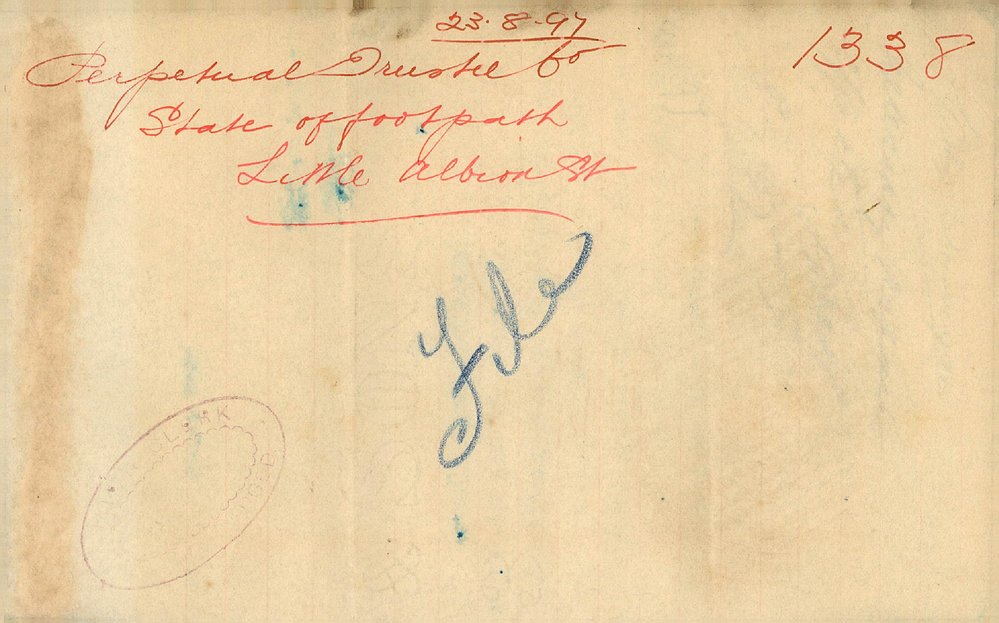 23.8.97
1338
Perpetual Trustee Co
State of footpath
Little Albion St
File